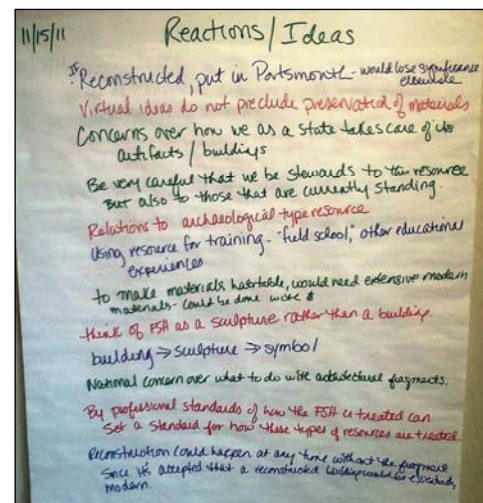 11/15/11
Reactions/Ideas
If Reconstructed, put in Portsmouth - would lose significance
elsewhere
Virtual ideas do not preclude preservation of materials
Concerns over how we as a state takes care of its
artifacts/buildings
Be very careful that we be stewards to this resource
but also to those that are currently standing.
Relations to archaeological type resource
Using resource for training - "field school," other educational
experiences
to make materials habitable, would need extensive modern
materials - could be done with $
think of FSH as a sculpture rather than a building.
building → sculpture → symbol
National concern over what to do with architectural fragments.
By professional standards of how the FSH is treated can
Set a standard for how these types of resources are treated
Reconstruction could happen at any time without the fragments
Since it's accepted that a reconstructed building would be essentially
modern.